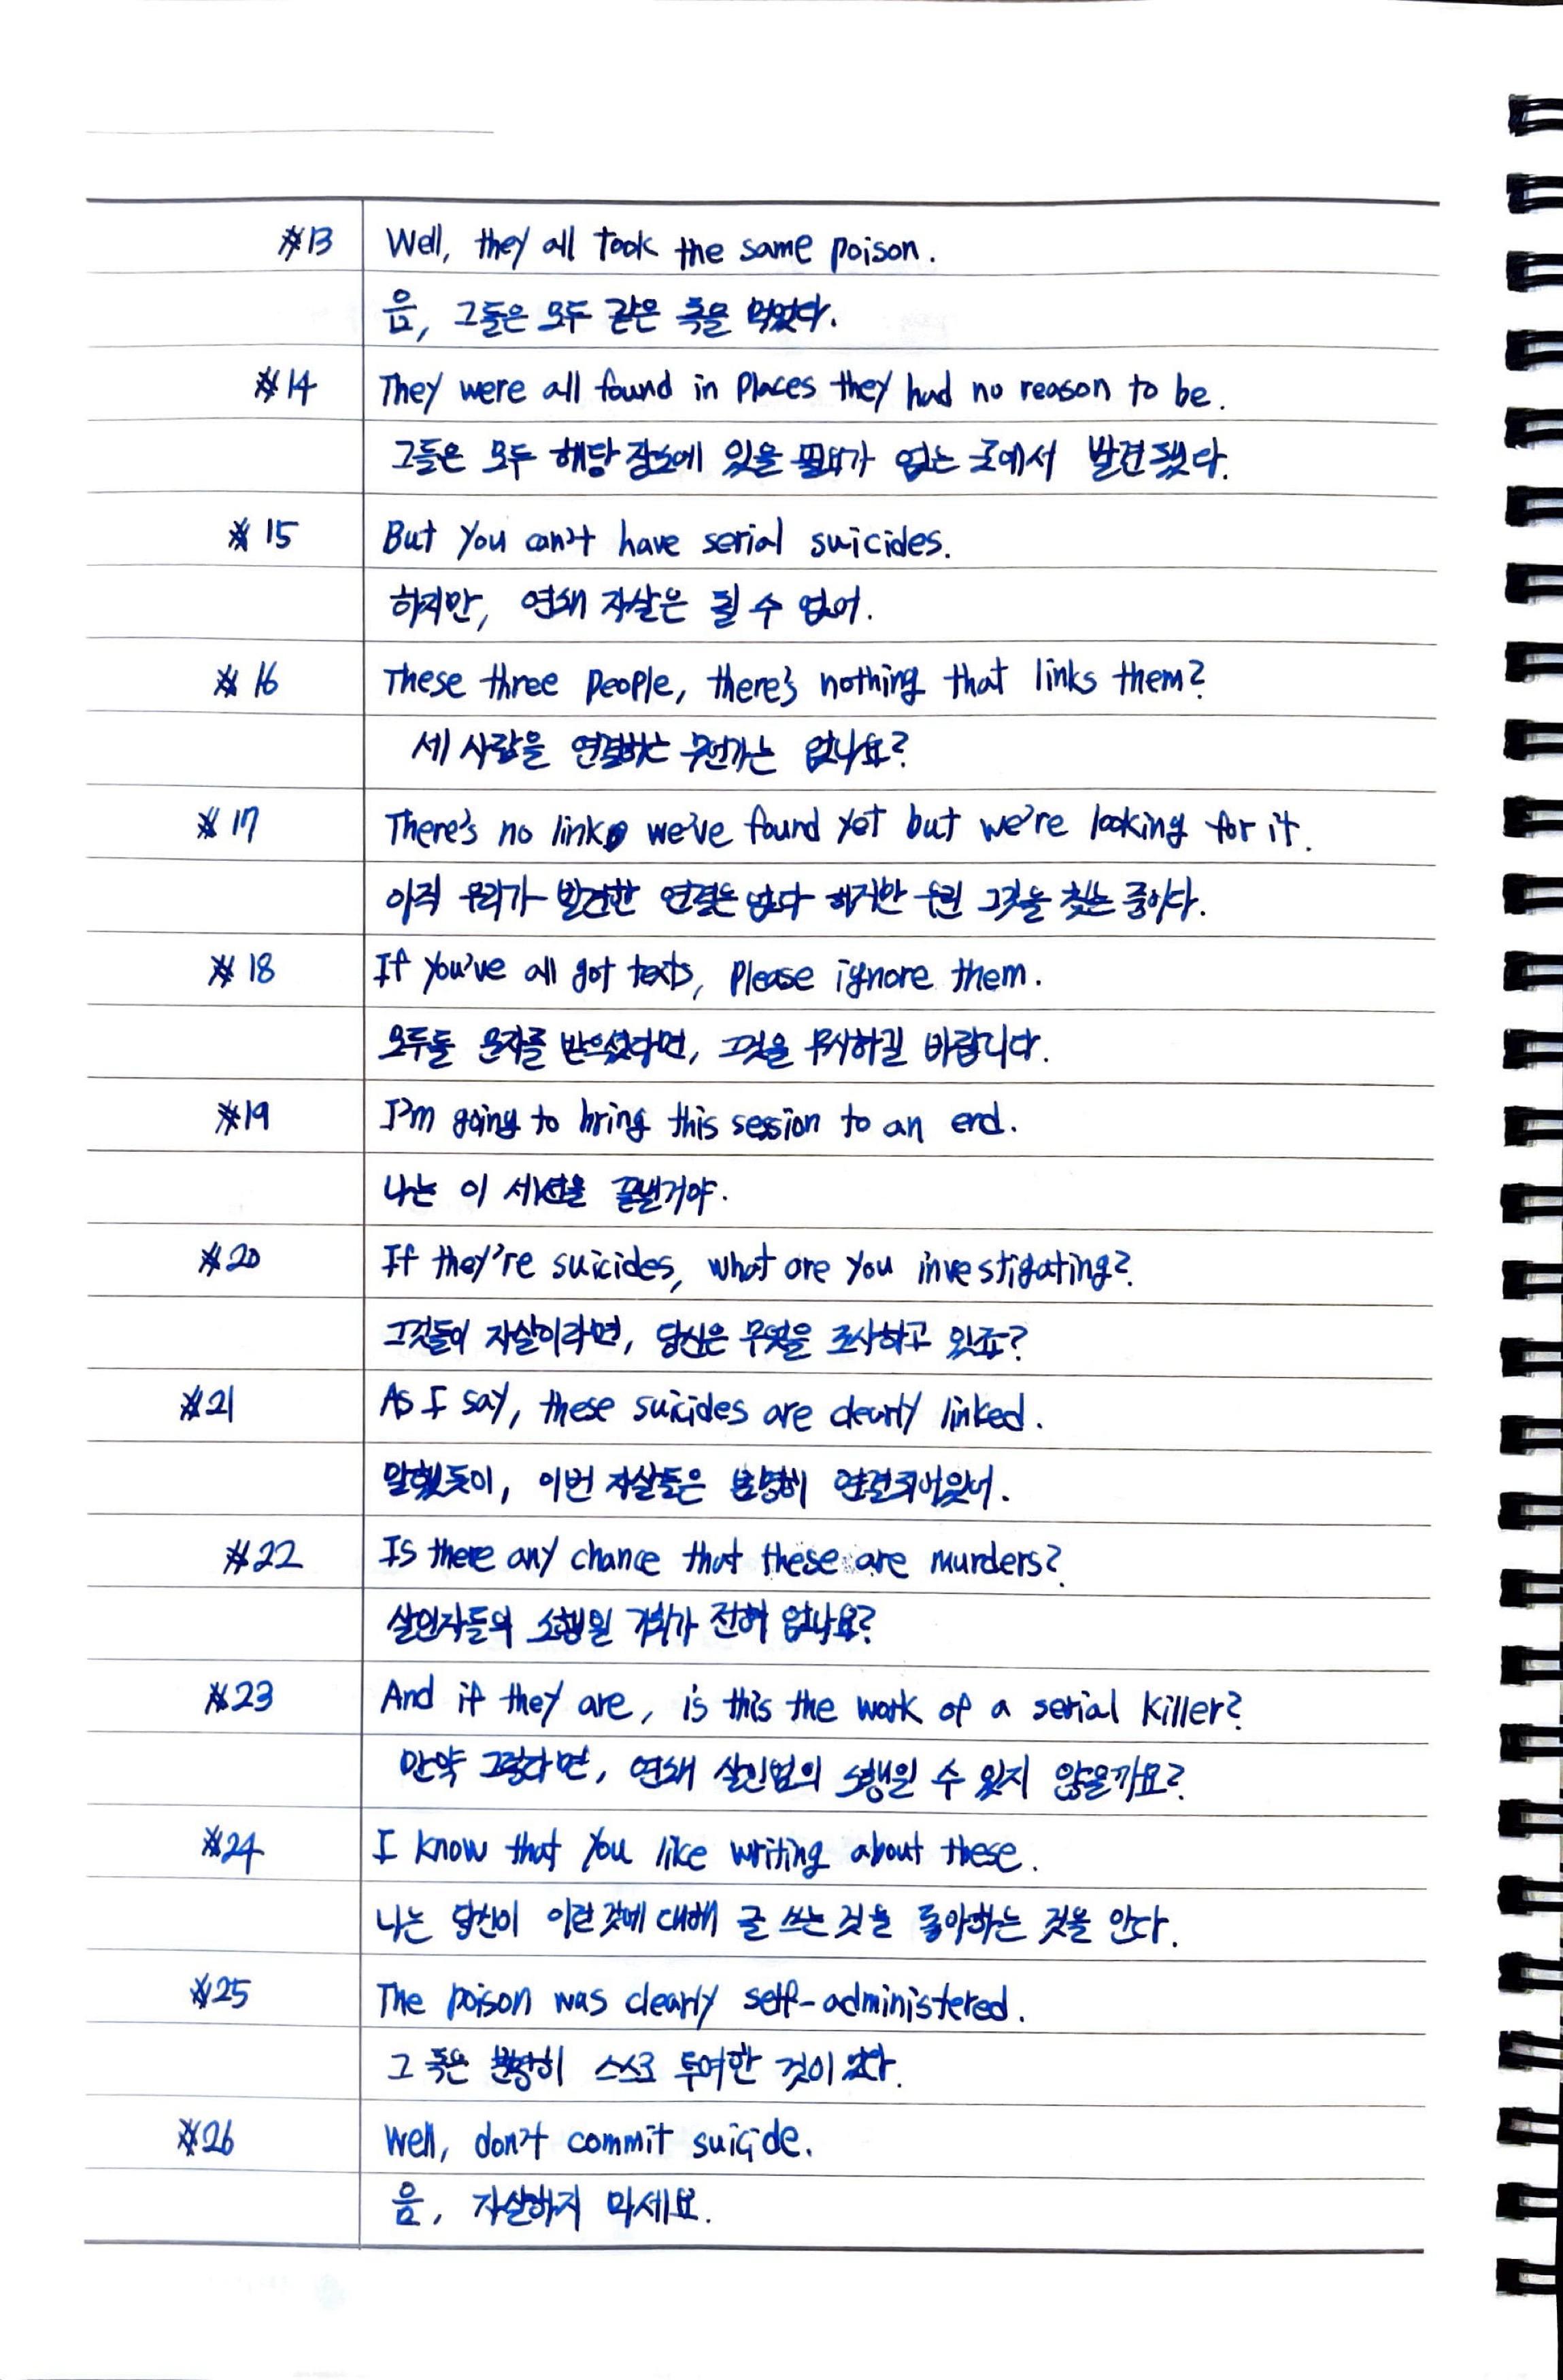 #13 Well, they all took the same poison.
음, 그들은 모두 같은 독을 먹었다.
#14 They were all found in places they had no reason to be.
그들은 모두 해당 장소에 있을 필요가 없는 곳에서 발견됐다.
#15 But you can't have serial suicides.
하지만, 연쇄 자살은 될 수 없어.
#16 These three people, there's nothing that links them?
세 사람을 연결하는 무언가는 없나요?
#17 There's no link we've found yet but we're looking for it.
아직 우리가 발견한 연결은 없다 하지만 우린 그것을 찾는 중이다.
#18 If you've all got texts, please ignore them.
모두들 문자를 받으셨다면, 그것을 무시하길 바랍니다.
#19 I'm going to bring this session to an end.
나는 이 세션을 끝낼거야.
#20 If they're suicides, what are you investigating?
그것들이 자살이라면, 당신은 무엇을 조사하고 있죠?
#21 As I say, these suicides are clearly linked.
말했듯이, 이번 자살들은 분명히 연결되어있어.
#22 Is there any chance that these are murders?
살인자들의 소행일 기회가 전혀 없나요?
#23 And if they are, is this the work of a serial killer?
만약 그렇다면, 연쇄 살인범의 소행일 수 있지 않을까요?
#24 I know that you like writing about these.
나는 당신이 이런 것에 대해 글 쓰는 것을 좋아하는 것을 안다.
#25 The poison was clearly self-administered.
그 독은 분명히 스스로 투여한 것이었다.
#26 Well, don't commit suicide.
음, 자살하지 마세요.